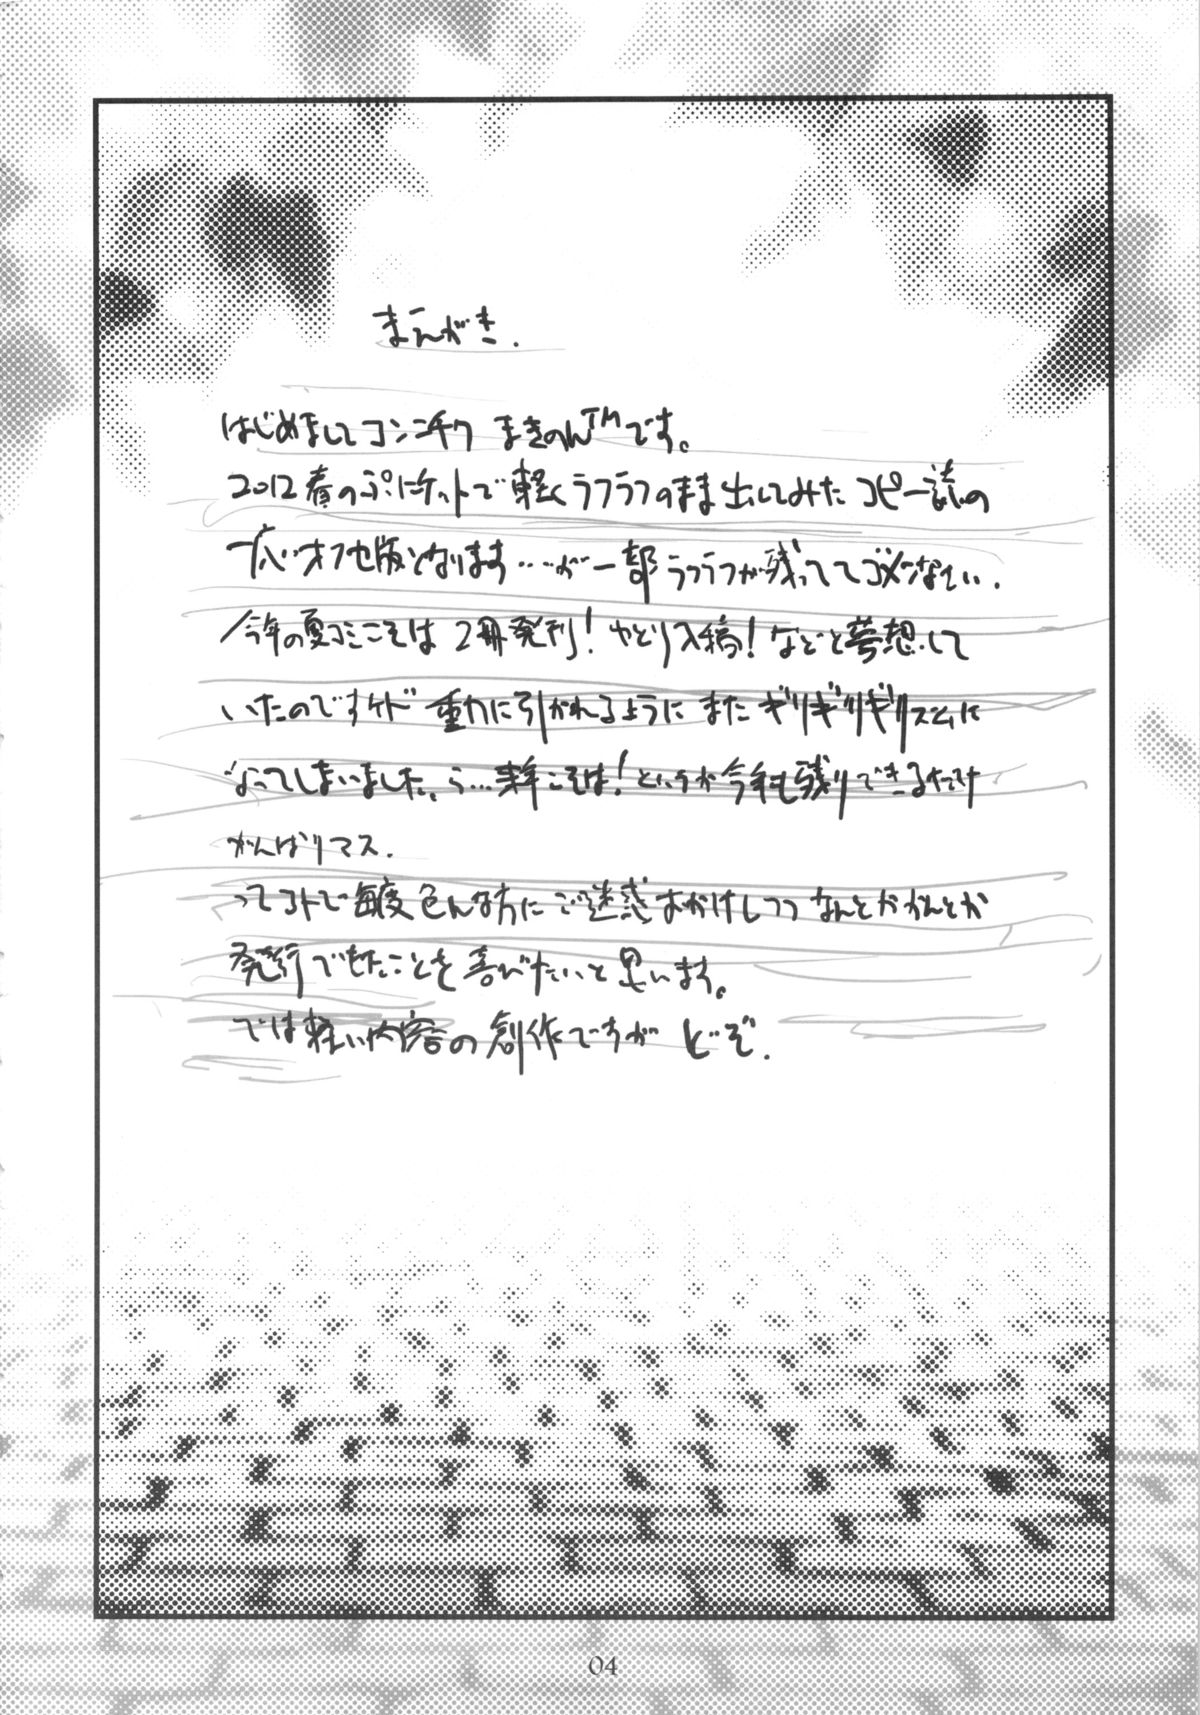 まえがき.
はじめましてコンニチワ まきのんTMです。
2012春のぷにケットで軽くラフラフのまま出してみたコピー誌の
オフセ版となります…が一部ラフラフが残っててゴメンなさい.
今年の夏コミこそは2冊発刊!ゆとり入稿!などと夢想して
いたのですケド 重力に引かれるように また ギリギリギリズムに
なってしまいました。ら…来年こそは!というか今年も残りできるだけ
がんばりマス.
ってコトで毎度色んな方にご迷惑おかけしつつ なんとかかんとか
発行できたことを喜びたいと思います。
では軽い内容の創作ですが どーぞ.
04